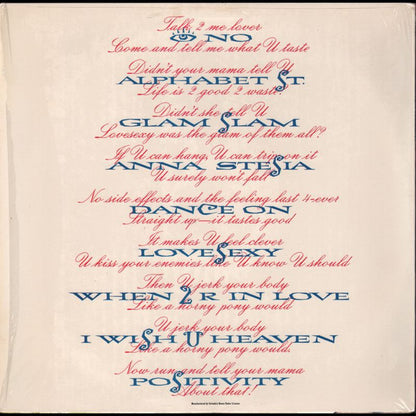 Talk 2 me lover
👁 NO
Come and tell me what U taste
Didn't your mama tell U
ALPHABET ST.
Life is 2 good 2 waste?
Didn't she tell U
GLAM SLAM
Lovesexy was the glam of them all?
If U can hang, U can trip on it
ANNA STESIA
U surely won't fall
No side effects and the feeling last 4-ever
DANCE ON
Straight up—it tastes good
It makes U feel clever
LOVESEXY
U kiss your enemies like U know U should
Then U jerk your body
WHEN 2 R IN LOVE
Like a horny pony would
U jerk your body
I WISH U HEAVEN
Like a horny pony would.
Now run and tell your mama
POSITIVITY
About that!